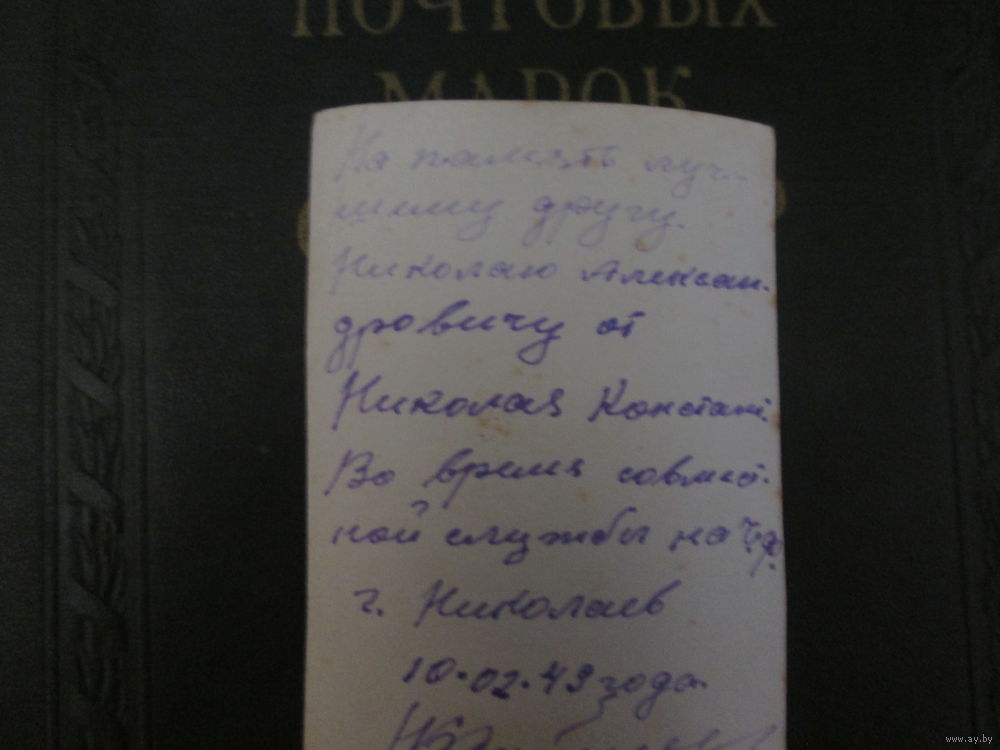 ПОЧТОВЫХ
МАРОК
На память луч-
шему другу.
Николаю Алексан-
дровичу от
Николая Констант.
Во время совмест-
ной службы на ЧФ.
г. Николаев
10.02.49 года.
www.ay.by